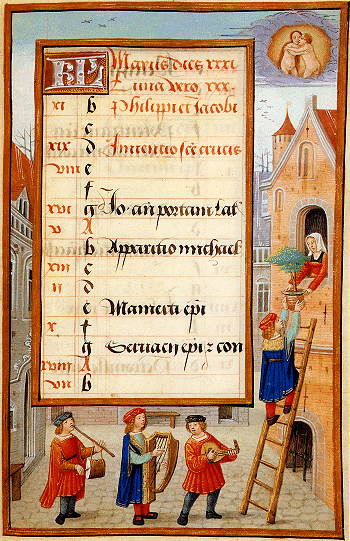 KL Maius dies xxxi
Luna vero xxx
xi b Philippi et Jacobi
c
xix d Inventio sce crucis
viii e
f
xvi g Jo. an portam lat
v A
b Apparitio michael
xiii c
ii d
e Mamerti epi
x f
g Servacii epi z con
xviii A
vii b